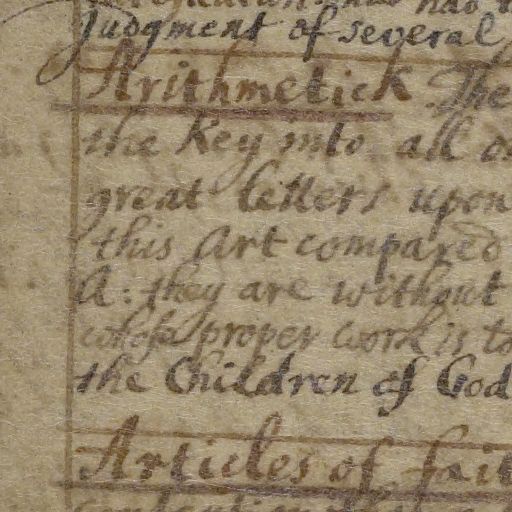 Judgment of several
Arithmetick The
the Key into all
great letters upon
this Art compared
A: they are without
whose proper work is to
the Children of God
Articles of fait